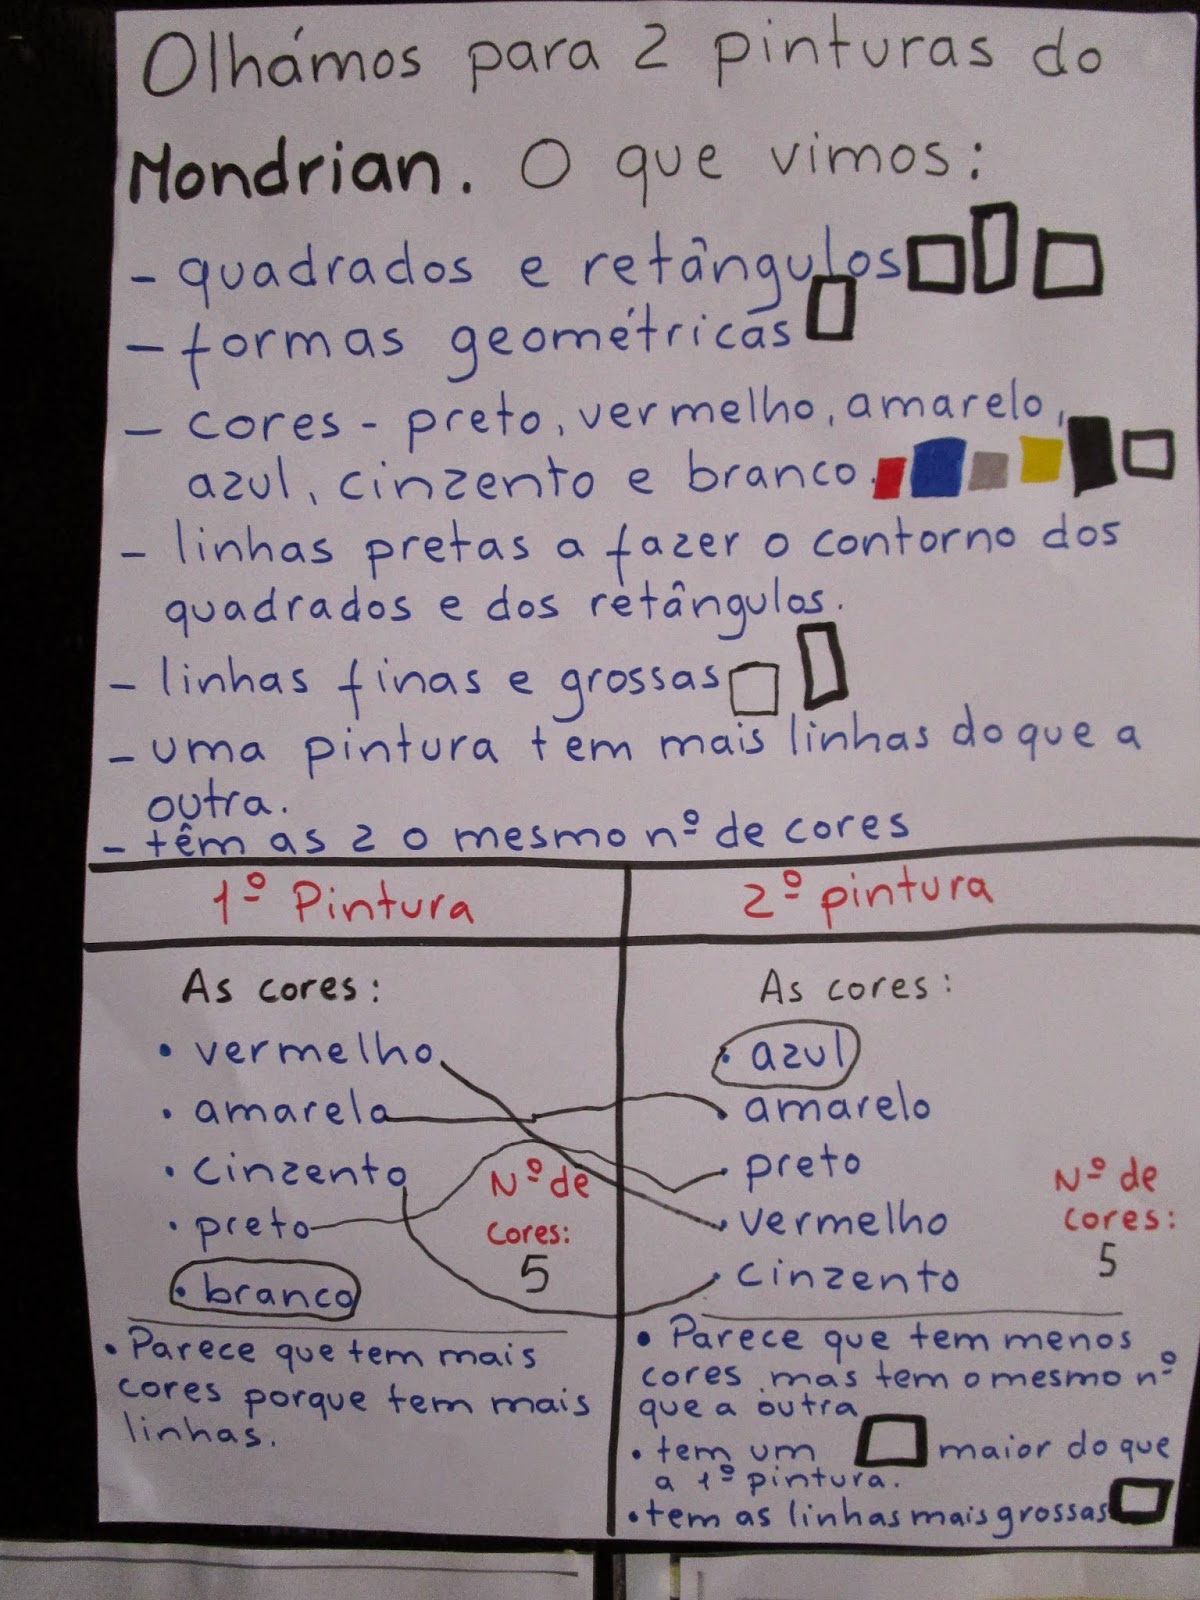 Olhámos para 2 pinturas do
Mondrian. O que vimos:
- quadrados e retângulos
- formas geométricas
- cores - preto, vermelho, amarelo,
azul, cinzento e branco.
- linhas pretas a fazer o contorno dos
quadrados e dos retângulos.
- linhas finas e grossas
- uma pintura tem mais linhas do que a
outra.
- têm as 2 o mesmo nº de cores
1º Pintura
As cores:
• vermelho
• amarelo
• cinzento
• preto
• branco
Nº de
cores:
5
• Parece que tem mais
cores porque tem mais
linhas.
2º pintura
As cores:
• azul
• amarelo
• preto
• vermelho
• cinzento
Nº de
cores:
5
• Parece que tem menos
cores, mas tem o mesmo nº
que a outra
• tem um maior do que
a 1º pintura.
• tem as linhas mais grossas